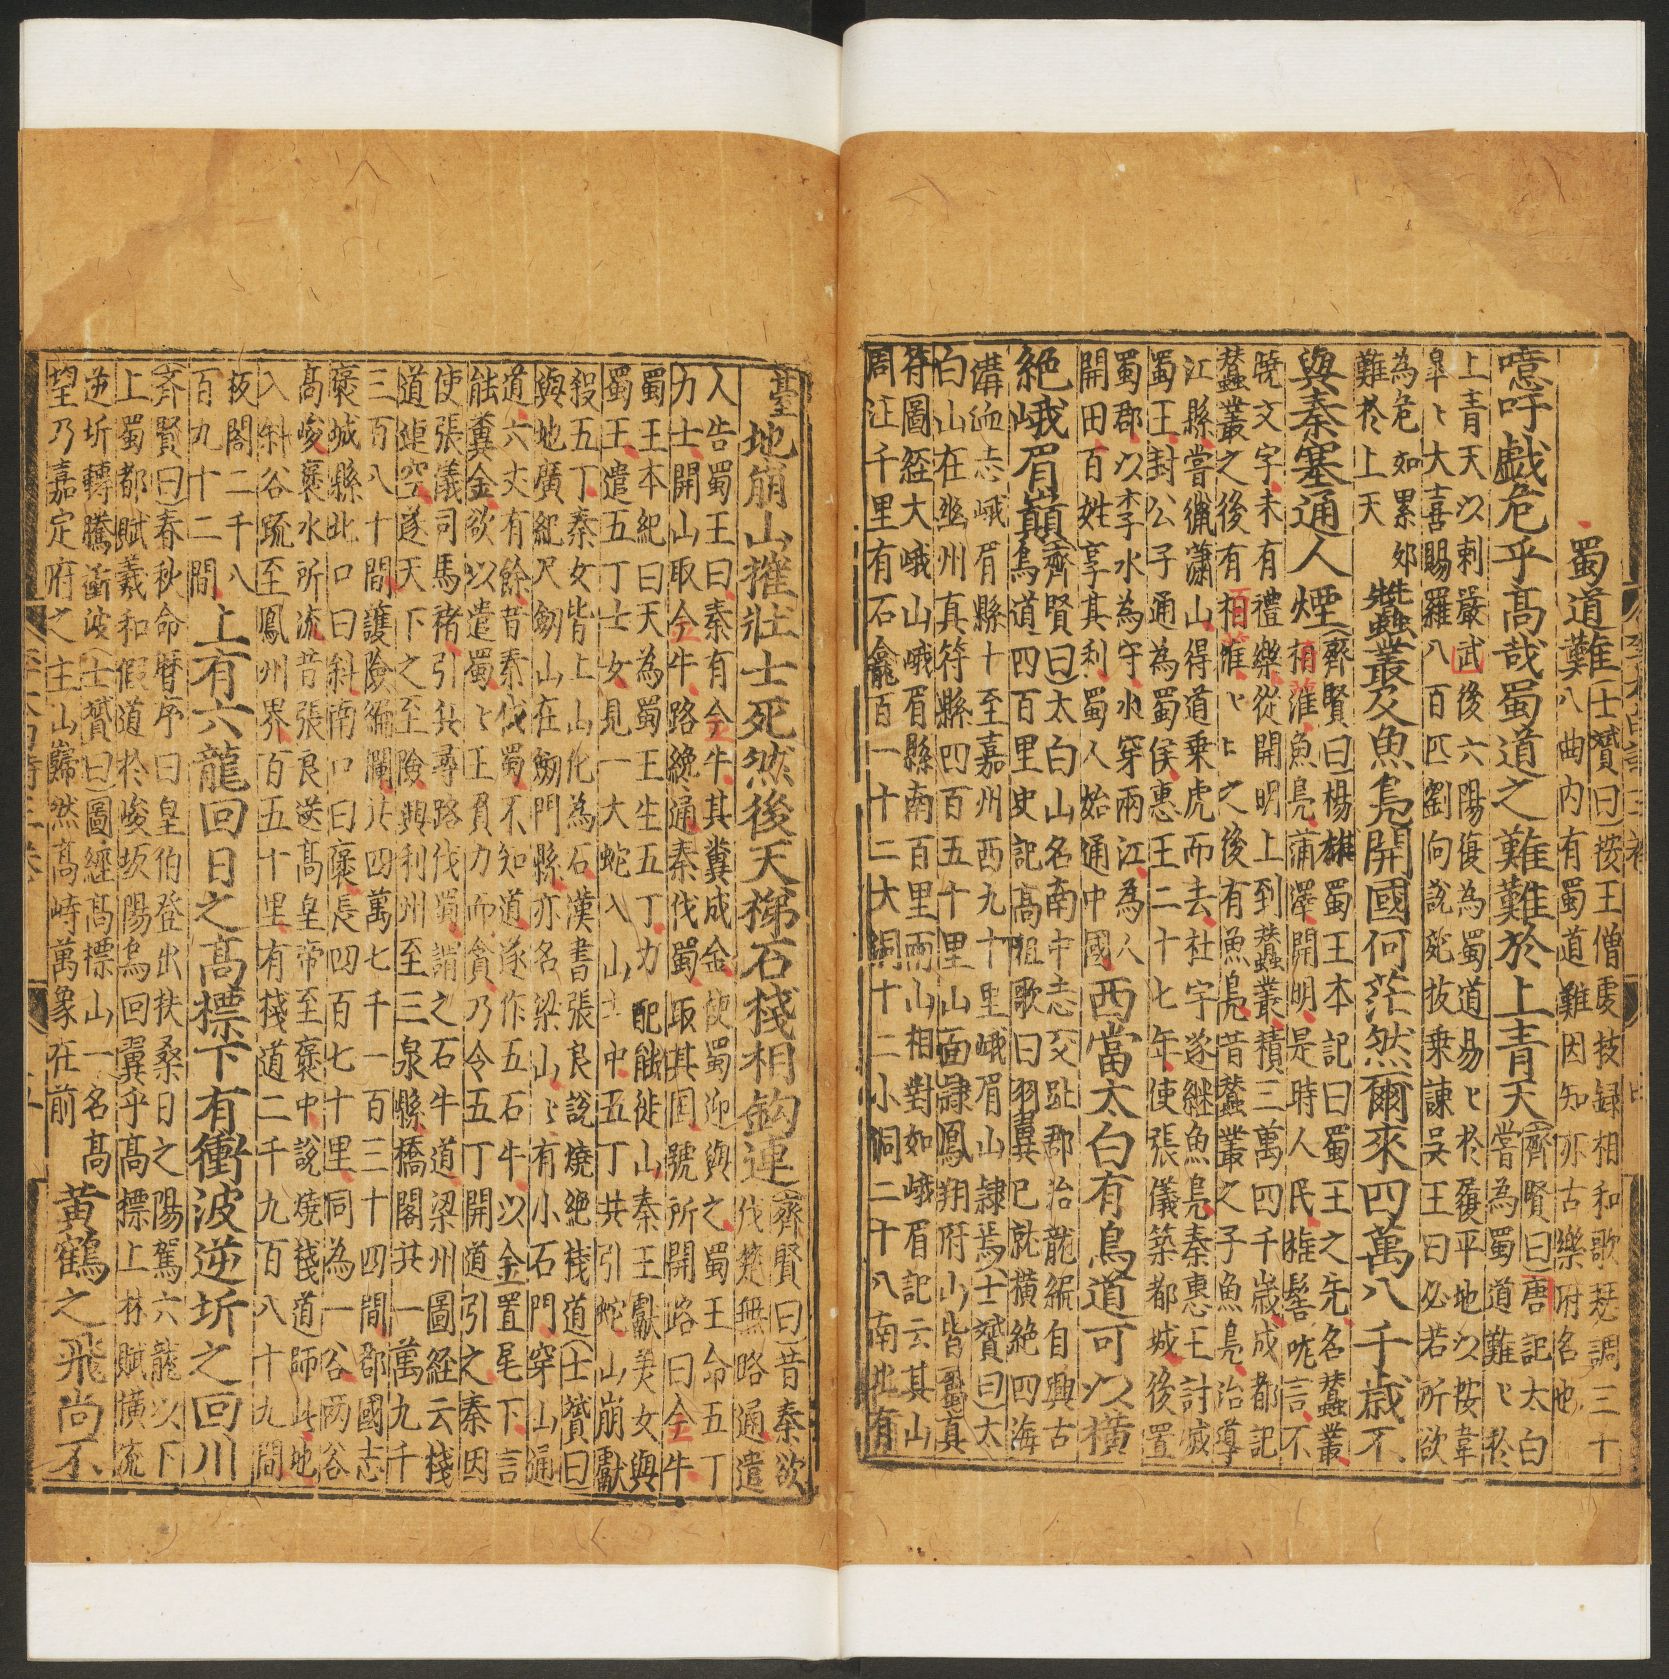 蜀道難(士贇曰)按王僧虔技録相和歌瑟調三十
八曲内有蜀道難因知亦古樂府名也
噫吁戯危乎髙哉蜀道之難難於上青天(齊賢曰)唐記太白
嘗為蜀道難〻於
上青天以刺嚴武後六陽復為蜀道易〻於履平地以按韋
臯〻大喜賜羅八百匹劉向說苑枚乗諫吴王曰必若所欲
為危如累夘
難於上天
蠶叢及魚鳬開國何茫然爾來四萬八千歲不
與秦塞通人煙(齊賢曰)楊雄蜀王本記曰蜀王之先名蠶叢
栢灌魚鳬蒲澤開明是時人民椎髻哤言不
曉文字未有禮樂從開明上到蠶叢積三萬四千歲成都記
蠶叢之後有栢灌〻〻之後有魚鳬昔蠶叢之子魚鳬治導
江縣嘗獵瀟山得道乗虎而去杜宇遂継魚鳬秦惠王討㓕
蜀王封公子通為蜀侯惠王二十七年使張儀築都城後置
蜀郡以李水為守水穿兩江為人
開田百姓享其利蜀人始通中國
西當太白有鳥道可以横
絶峨眉巔(齊賢曰)太白山名南中志交趾郡治龍編自興古
鳥道四百里史記髙祖歌曰羽翼已就横絶四海
溝洫志峨眉縣十至嘉州西九十里峨眉山隸焉(士贇曰)太
白山在州真符縣四百五十里山面隷鳳翔府山皆真
符圖経大峨山峨眉縣南百里兩山相對如峨眉記云其山
周迬千里有石龕百一十二大洞十二小洞二十八南北有
臺地崩山摧壯士死然後天梯石棧相鈎連(齊賢曰)昔秦欲
伐楚無路通遣
人告蜀王曰秦有金牛其糞成金使蜀迎與之蜀王命五丁
力士開山取金牛路纔通秦伐蜀取其国號所開路曰金牛
蜀王本紀曰天為蜀王生五丁力配能徙山秦王獻美女與
蜀王遣五丁士女見一大蛇入山士中五丁共引蛇山崩獻
殺五丁秦女皆上山化為石漢書張良說燒絶棧道(士贇曰)
與地廣紀尺劒山在劒門縣亦名梁山〻有小石門穿山通
道六丈有餘昔秦伐蜀不知道遂作五石牛以金置尾下言
能糞金欲以遣蜀〻王負力而貪乃令五丁開道引之秦因
使張儀司馬褚引兵尋路伐蜀謂之石牛道梁州圖経云棧
道連空遂天下之至險興利州至三泉縣橋閣共一萬九千
三百八十間護險偏瀾共四萬七千一百三十四間郡國志
褒城縣北口曰斜南口曰褒長四百七十里同為一谷兩谷
髙峻褒水所流昔張良送髙皇帝至褒中說燒棧道師此地
入斜谷疏至鳳州界百五十里有棧道二千九百八十九間
扳閣二千八
百九十二間
上有六龍回日之髙標下有衝波逆圻之回川
齊賢曰春秋命暦序曰皇伯登出扶桑日之陽駕六龍以下
上蜀都賦羲和假道於峻坂陽烏回翼乎髙標上林賦横流
逆圻轉騰衝波(士贇曰)圖經髙標山一名髙
望乃嘉定府之主山巋然髙峙萬象在前
黄鶴之飛尚不